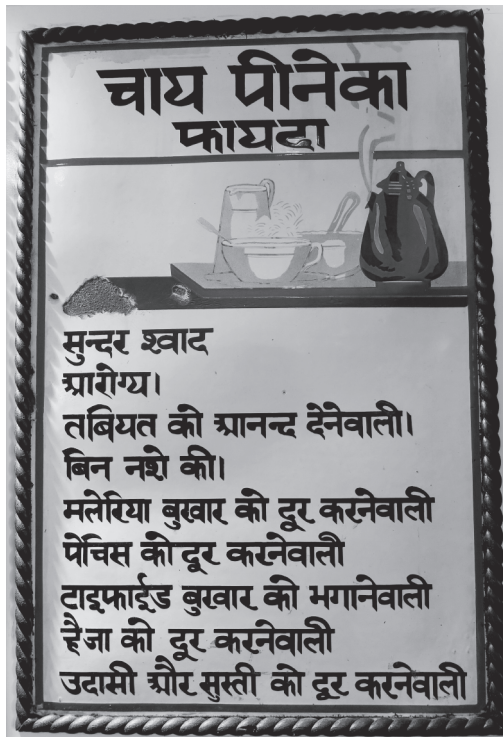 चाय पीनेका
फायदा
सुन्दर श्वाद
आरोग्य।
तबियत को आनन्द देनेवाली।
बिन नशे की।
मलेरिया बुखार को दूर करनेवाली
पेचिस को दूर करनेवाली
टाइफाईड बुखार को भगानेवाली
हैजा को दूर करनेवाली
उदासी और सुस्ती को दूर करनेवाली